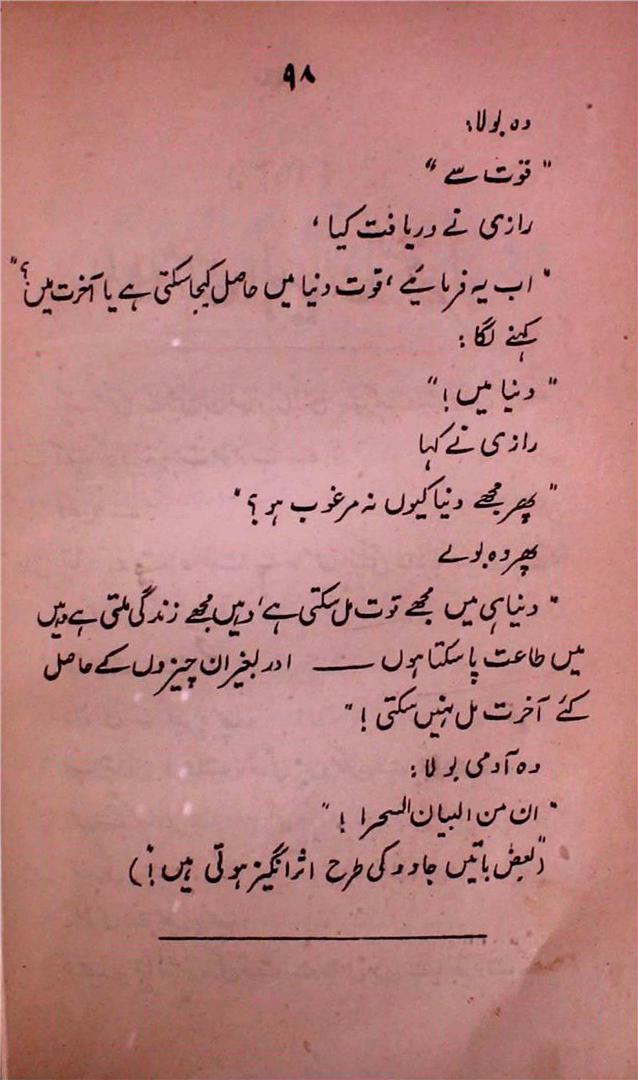 ۹۸
وہ بولا:
"قوت سے"
رازی نے دریافت کیا،
"اب یہ فرمائیے، قوت دنیا میں حاصل کیجاسکتی ہے یا آخرت میں؟"
کہنے لگا:
"دنیا میں!"
رازی نے کہا
"پھر مجھے دنیا کیوں نہ مرغوب ہو؟"
پھر وہ بولے
"دنیا ہی میں مجھے قوت مل سکتی ہے، وہیں مجھے زندگی ملتی ہے وہیں
میں طاعت پا سکتا ہوں —— اور بغیر ان چیزوں کے حاصل
کئے آخرت مل نہیں سکتی!"
وہ آدمی بولا:
"ان من البیان السحرا!"
("بعض باتیں جادو کی طرح اثر انگیز ہوتی ہیں!")